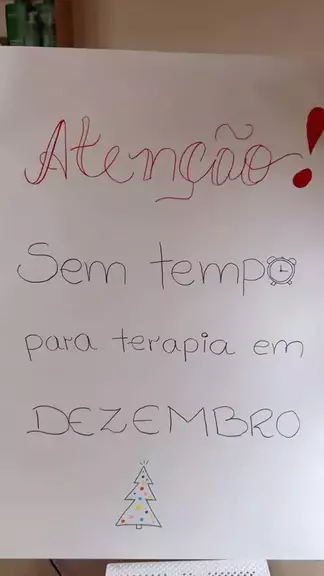 Atenção!
Sem tempo
para terapia em
DEZEMBRO